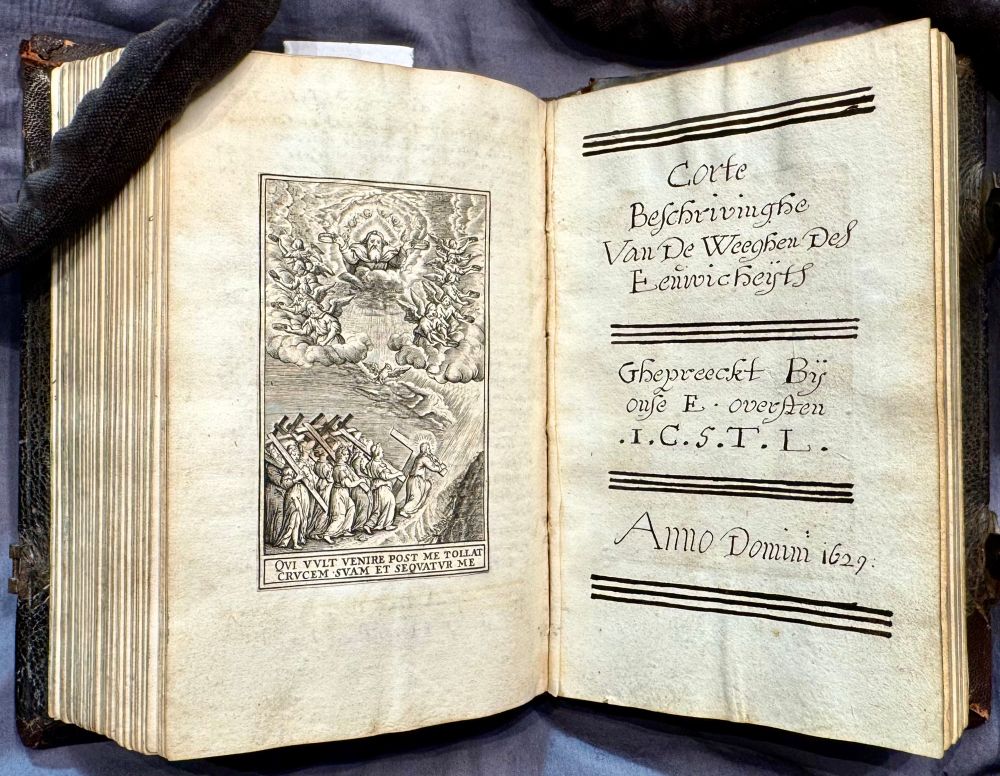 QVI VVLT VENIRE POST ME TOLLAT
CRVCEM SVAM ET SEQVATVR ME
Corte
Beſchrivinghe
Van De Weeghen Deſ
Eeŭwicheÿtſ
Ghepreeckt Bÿ
onſe E. overſten
.I.C.S.T.L.
Anno Domini 1629.